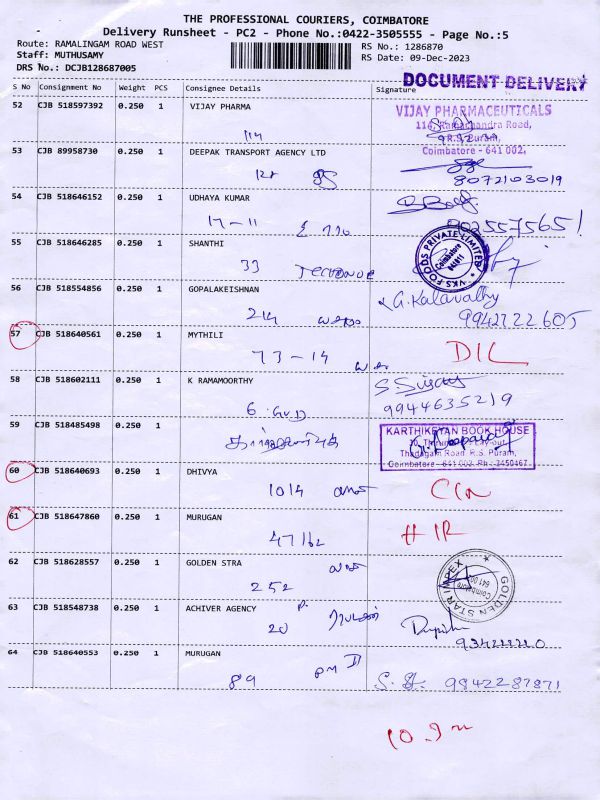 THE PROFESSIONAL COURIERS, COIMBATORE
Delivery Runsheet - PC2 - Phone No.:0422-3505555 - Page No.:5
Route: RAMALINGAM ROAD WEST
RS No.: 1286870
Staff: MUTHUSAMY
RS Date: 09-Dec-2023
DRS No.: DCJB128687005
DOCUMENT DELIVERY
S No Consignment No Weight PCS Consignee Details Signature
52 CJB 518597392 0.250 1 VIJAY PHARMA
VIJAY PHARMACEUTICALS
114, Ramachandra Road,
R.S. Puram,
Coimbatore - 641 002.
114
53 CJB 89958730 0.250 1 DEEPAK TRANSPORT AGENCY LTD
8072103019
54 CJB 518646152 0.250 1 UDHAYA KUMAR
17-11
55 CJB 518646285 0.250 1 SHANTHI
33
NKS FOODS PRIVATE LIMITED
Coimbatore
641011
56 CJB 518554856 0.250 1 GOPALAKEISHNAN
G. Kalavathy
214
9942722605
57 CJB 518640561 0.250 1 MYTHILI
73-14
DIL
58 CJB 518602111 0.250 1 K RAMAMOORTHY
9944635219
6
59 CJB 518485498 0.250 1
KARTHIKEYAN BOOK HOUSE
Thadagam Road, R.S. Puram,
Coimbatore - 641 002. Ph : 2450467
60 CJB 518640693 0.250 1 DHIVYA
1014
61 CJB 518647860 0.250 1 MURUGAN
62 CJB 518628557 0.250 1 GOLDEN STRA
252
GOLDEN STAR IMPEX
Coimbatore
63 CJB 518548738 0.250 1 ACHIVER AGENCY
20
64 CJB 518640553 0.250 1 MURUGAN
89
9842287871